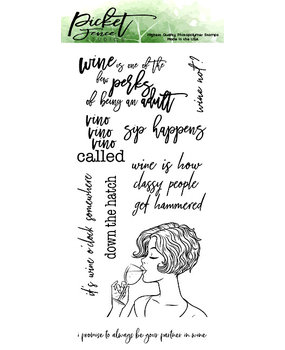 Picket
Fence
STUDIOS
Highest Quality Photopolymer Stamps
Made in the USA
wine is one of the
few perks
of being an adult
wine not?
vino
vino
vino
called
sip happens
it's wine o'clock somewhere
down the hatch
wine is how
classy people
get hammered
i promise to always be your partner in wine